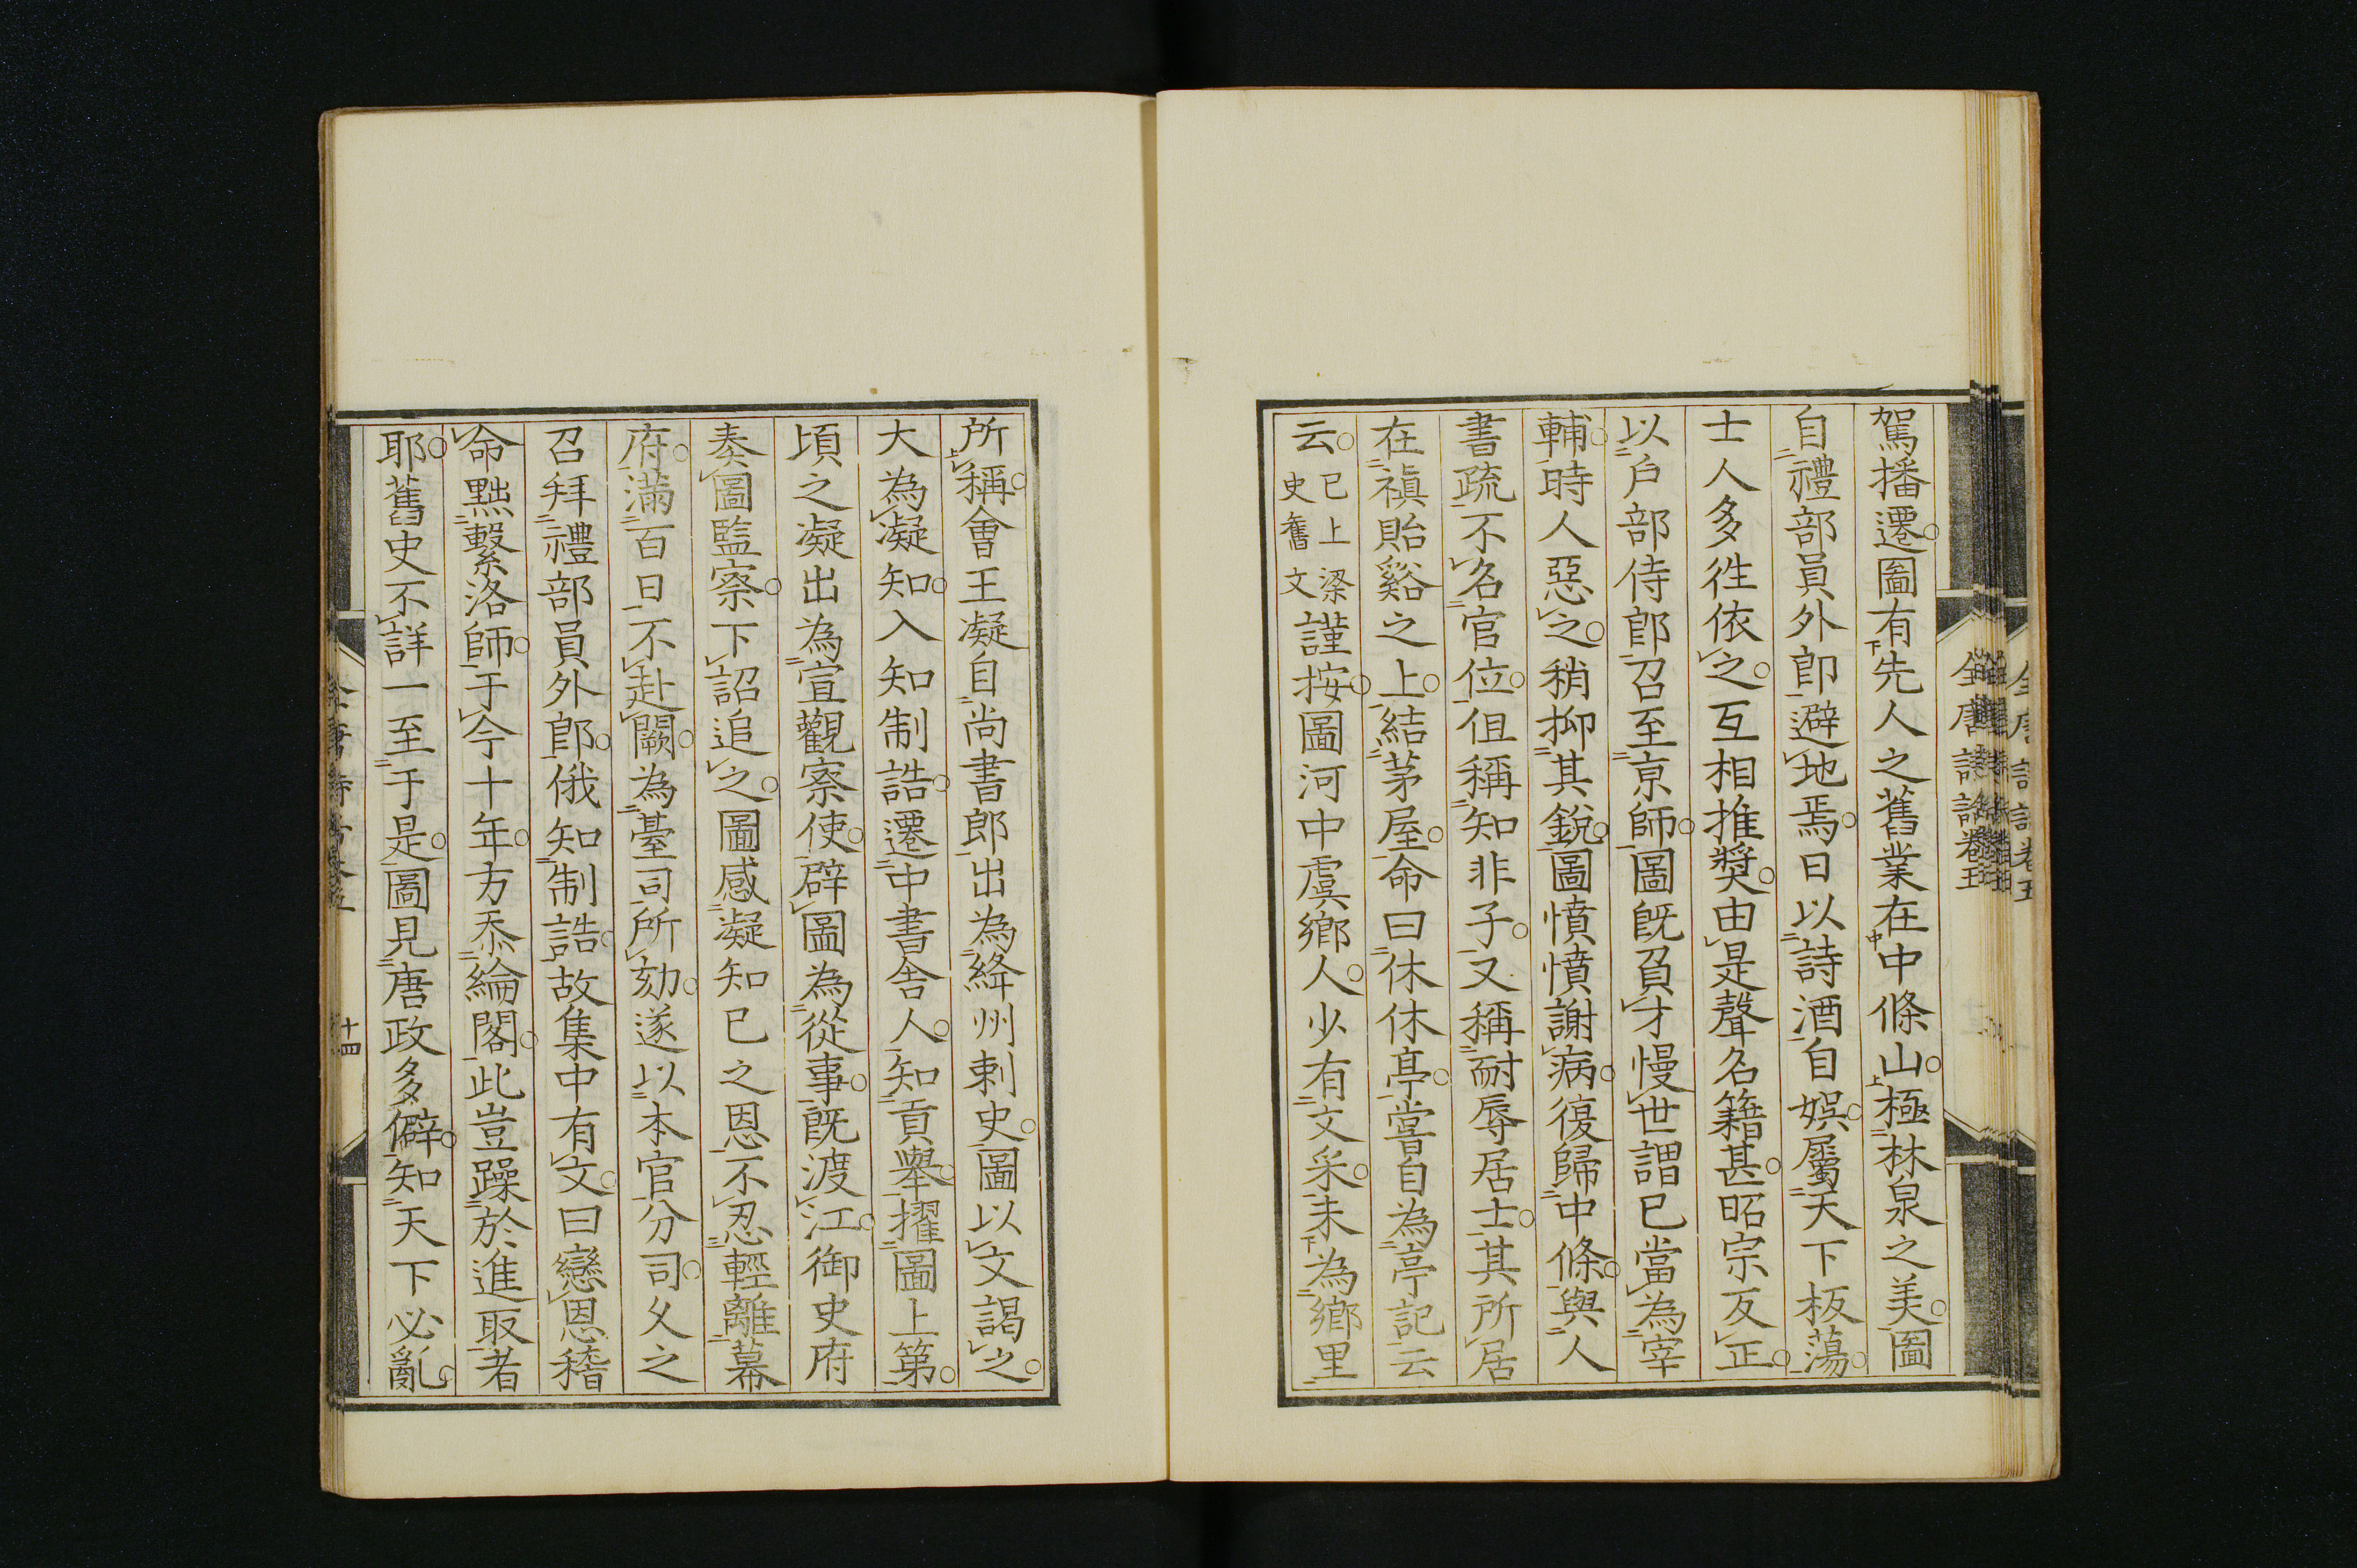 駕播遷圗有先人之舊業在中條山極林泉之美圖
自禮部員外郎避地焉日以詩酒自娯屬天下板蕩
士人多徃依之互相推奬由是聲名籍甚昭宗反正
以戶部侍郎召至亰師圖旣負才慢世謂已當為宰
輔時人惡之稍抑其銳圖憤憤謝病復歸中條與人
書疏不名官位伹稱知非子又稱耐辱居士其所居
在禎貽谿之上結茅屋命曰休休亭嘗自為亭記云
云已上梁史舊文謹按圖河中虞鄉人少有文采未為鄉里
所稱會王凝自尚書郎出為絳州刺史圖以文謁之
大為凝知入知制誥遷中書舍人知貢舉擢圖上第
頃之凝出為宣觀察使辟圖為從事旣渡江御史府
奏圖監察下詔追之圖感凝知已之恩不忍輕離幕
府滿百日不赴闕為臺司所劾遂以本官分司久之
召拜禮部員外郎俄知制誥故集中有文曰戀恩稽
命黜繫洛師于今十年方忝綸閣此豈躁於進取者
耶舊史不詳一至于是圖見唐政多僻知天下必亂
全唐詩話卷五
十四